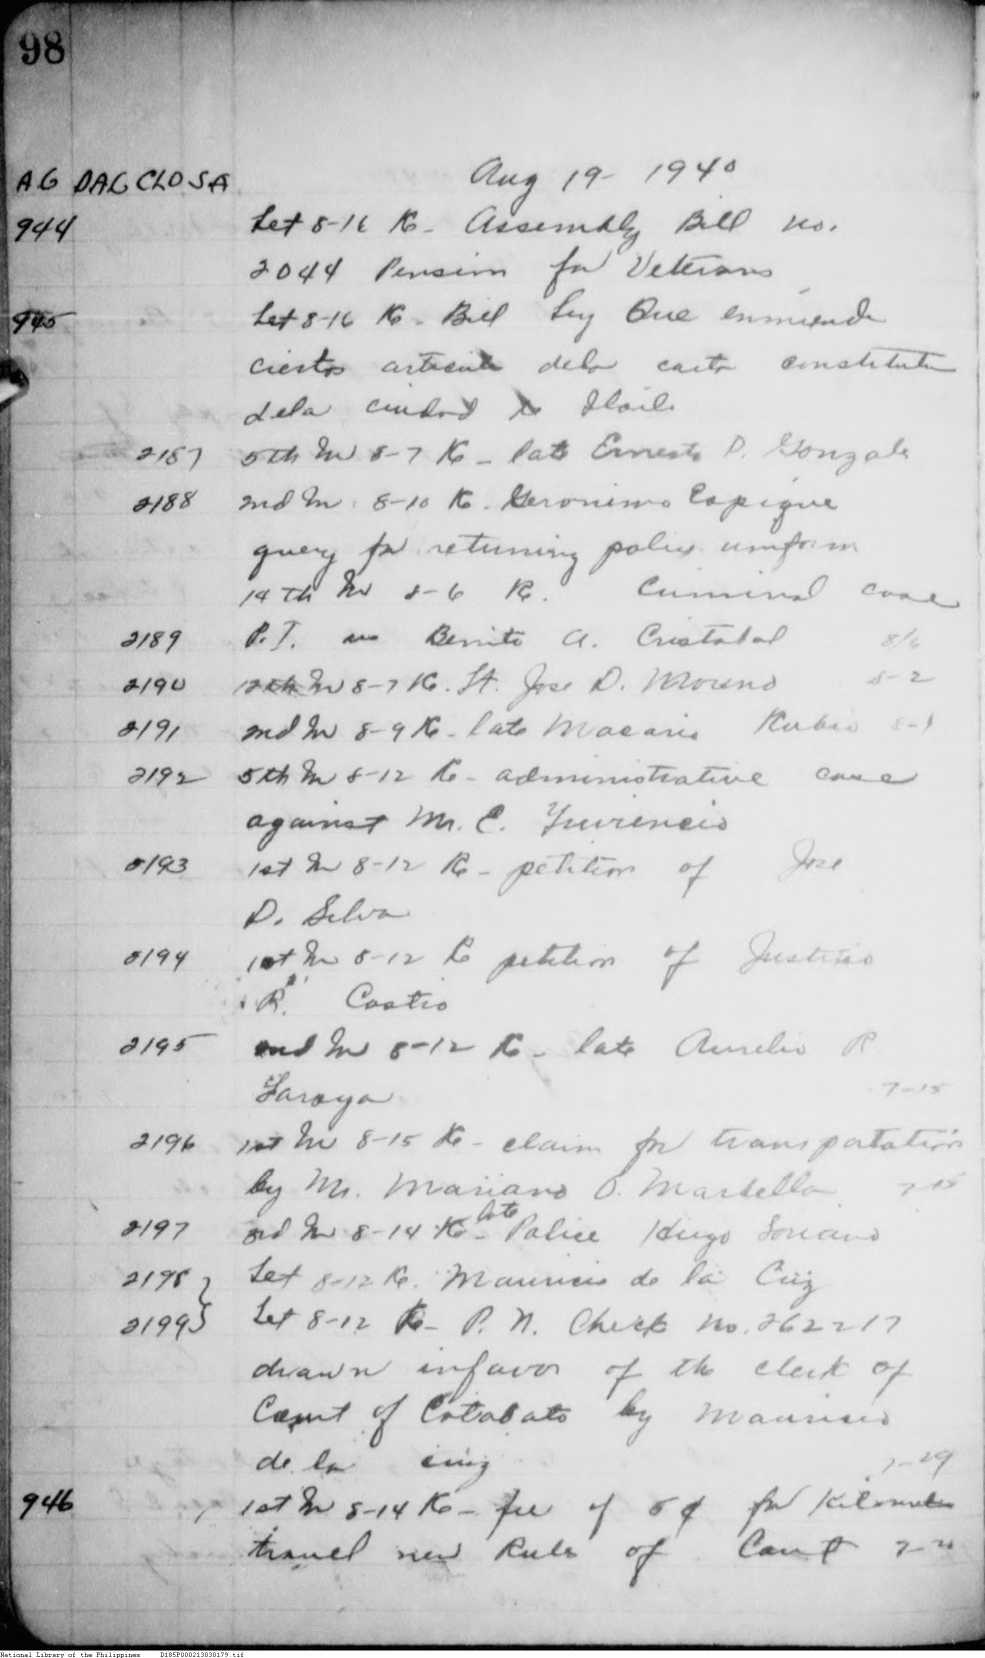 98
AG DAG CLO SA Aug 19- 1940
944 Let 8-16 K- Assembly Bill no.
2044 Pension for Veterans
945 Let 8-16 K- Bill Ley Que enmienda
ciertos articulos dela carta constitutiva
dela ciudad de Iloilo
2187 5th In 8-7 K- late Ernesto P. Gonzales
2188 2nd In 8-10 K- Geronimo Espique
query for returning police uniform
14th In 8-6 K. Criminal case
2189 P.I. vs Benito A. Cristobal 8/6
2190 12th In 8-7 K. Lt. Jose D. Moreno 8-2
2191 2nd In 8-9 K- late Macario Rubio
2192 5th In 8-12 K- administrative case
against Mr. C.
2193 1st In 8-12 K- petition of Jose
D. Silva
2194 1st In 8-12 K petition of Justino
R. Castro
2195 2nd In 8-12 K- late Aurelio R
7-15
2196 1st In 8-15 K- claim for transportation
by Mr. Mariano O. Marbella 7-15
2197 3rd In 8-14 K- late Police Hugo Soriano
2198 Let 8-12 K. Mauricio de la Cruz
2199 Let 8-12 K- P. N. Check no. 262217
drawn infavor of the clerk of
Court of Cotabato by Mauricio
de la cruz 7-29
946 1st In 8-14 K- fee of 5¢ for Kilometer
travel new Rules of Court
National Library of the Philippines D185P000213030179.tif